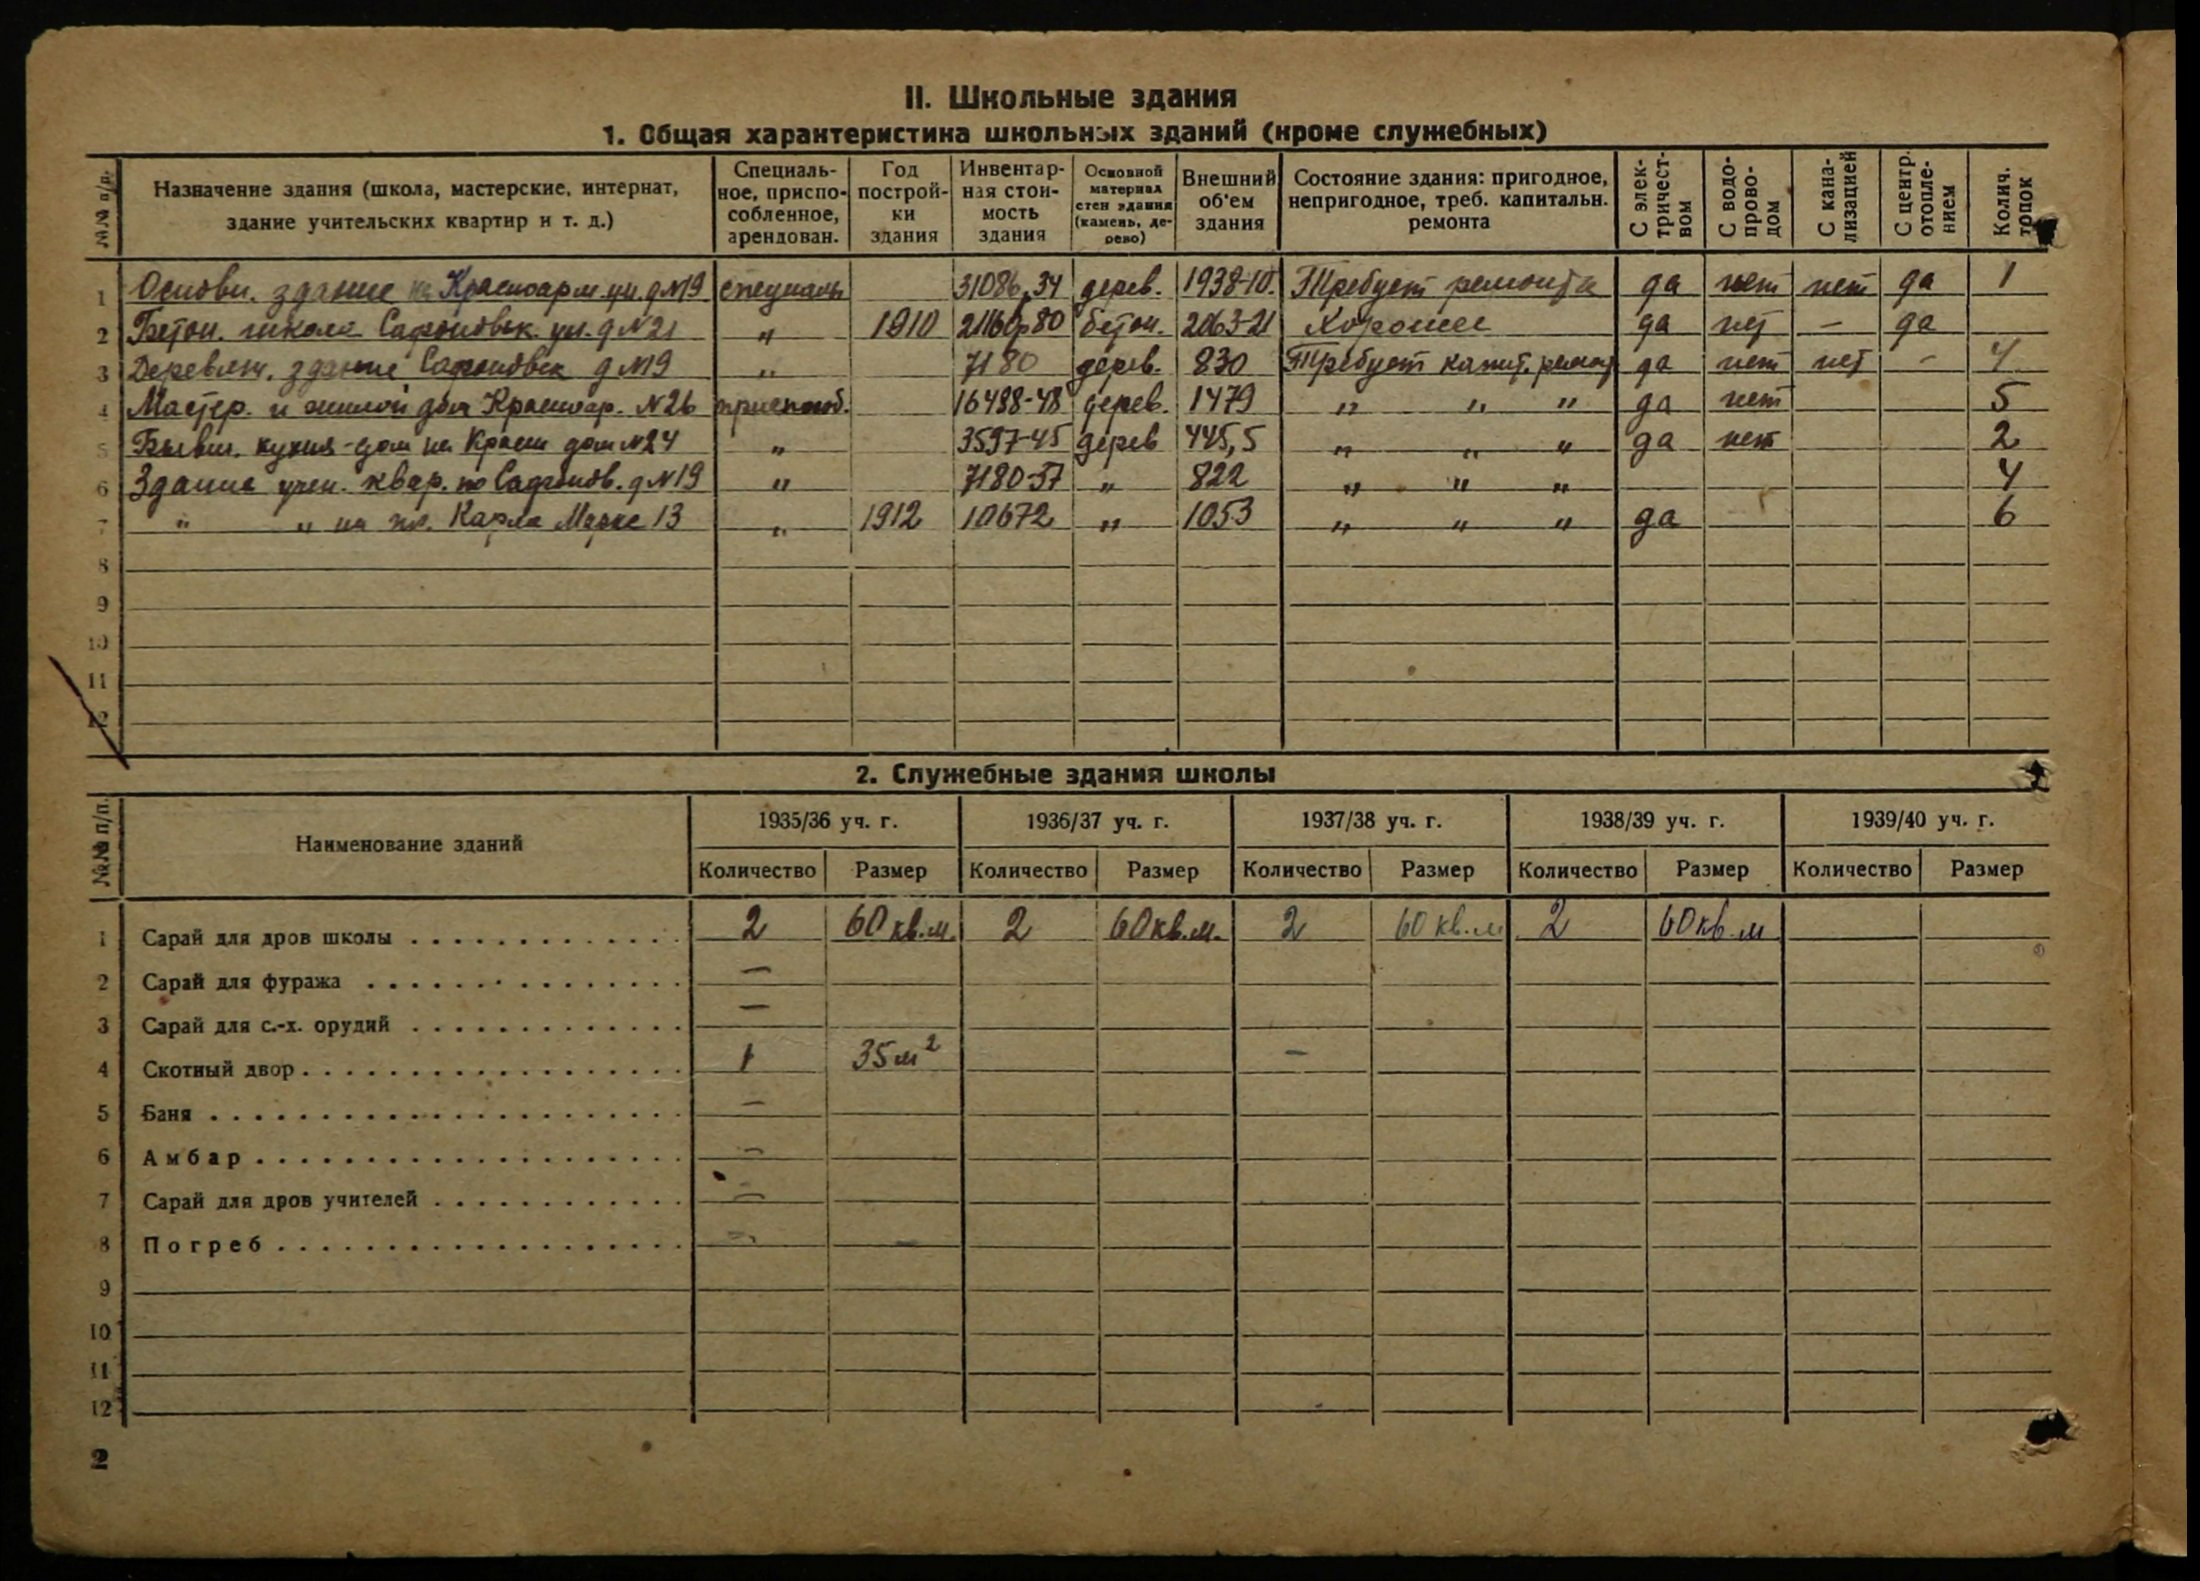 II. Школьные здания
1. Общая характеристика школьных зданий (кроме служебных)
№№ п/п. Назначение здания (школа, мастерские, интернат, здание учительских квартир и т. д.) Специальное, приспособленное, арендован. Год постройки здания Инвентарная стоимость здания Основной материал стен здания (камень, дерево) Внешний об'ем здания Состояние здания: пригодное, непригодное, треб. капитальн. ремонта С электричеством С водопроводом С канализацией С центр. отоплением Колич. топок
1 Основн. здание на Красноарм. ул. д №19 специальн 31086,34 дерев. 1938-10. Требует ремонта да нет нет да 1
2 Бетон. школа Сафоновск. ул. д №21 " 1910 21160р80 бетон. 2063-21 Хорошее да нет — да
3 Деревян. здание Сафоновск д №19 " 7180 дерев. 830 Требует капит. ремонт да нет нет - 4
4 Мастер. и жилой дом Красноар. №26 приспособ. 16488-48 дерев. 1479 " " " да нет 5
5 Бывш. кухня-дом на Красн дом №24 " 3597-45 дерев 445,5 " " " да нет 2
6 Здание учен. квар. по Сафонов. д №19 " 7180-37 " 822 " " " 4
7 " " на пл. Карла Маркс 13 " 1912 10672 " 1053 " " " да 6
8
9
10
11
12
2. Служебные здания школы
№№ п/п. Наименование зданий 1935/36 уч. г. 1936/37 уч. г. 1937/38 уч. г. 1938/39 уч. г. 1939/40 уч. г.
Количество Размер Количество Размер Количество Размер Количество Размер Количество Размер
1 Сарай для дров школы 2 60 кв.м. 2 60 кв.м. 2 60 кв.м 2 60 кв.м
2 Сарай для фуража —
3 Сарай для с.-х. орудий —
4 Скотный двор 1 35 м² —
5 Баня —
6 Амбар —
7 Сарай для дров учителей —
8 Погреб — —
9
10
11
12
2